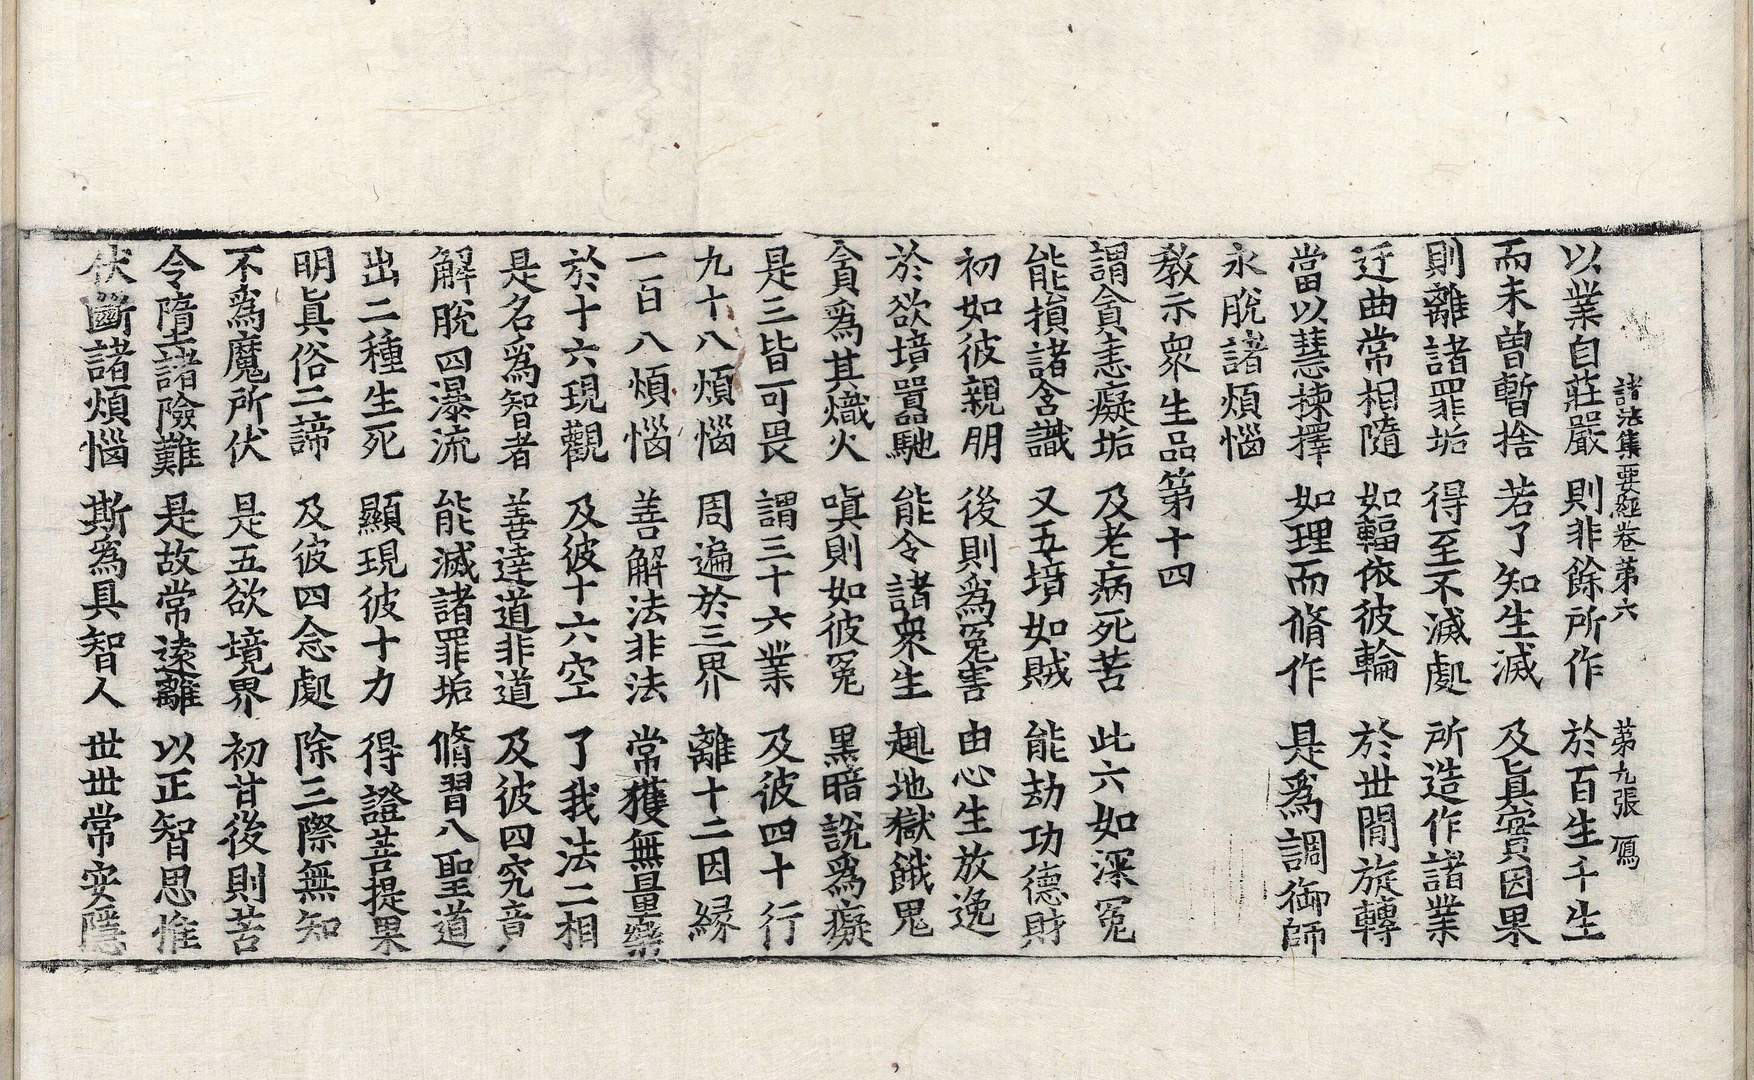 諸法集要經卷第六 第九張 鴈
以業自莊嚴 則非餘所作 於百生千生
而未曾暫捨 若了知生滅 及眞實因果
則離諸罪垢 得至不滅處 所造作諸業
迂曲常相隨 如輻依彼輪 於世間旋轉
當以慧揀擇 如理而脩作 是爲調御師
永脫諸煩惱
教示衆生品第十四
謂貪恚癡垢 及老病死苦 此六如深冤
能損諸含識 又五境如賊 能劫功德財
初如彼親朋 後則爲冤害 由心生放逸
於欲境嚚馳 能令諸衆生 趣地獄餓鬼
貪爲其熾火 嗔則如彼冤 黑暗說爲癡
是三皆可畏 謂三十六業 及彼四十行
九十八煩惱 周遍於三界 離十二因緣
一百八煩惱 善解法非法 常獲無量樂
於十六現觀 及彼十六空 了我法二相
是名爲智者 善達道非道 及彼四究竟
解脫四瀑流 能滅諸罪垢 脩習八聖道
出二種生死 顯現彼十力 得證菩提果
明眞俗二諦 及彼四念處 除三際無知
不爲魔所伏 是五欲境界 初甘後則苦
令墮諸險難 是故常遠離 以正智思惟
伏斷諸煩惱 斯爲具智人 世世常安隱